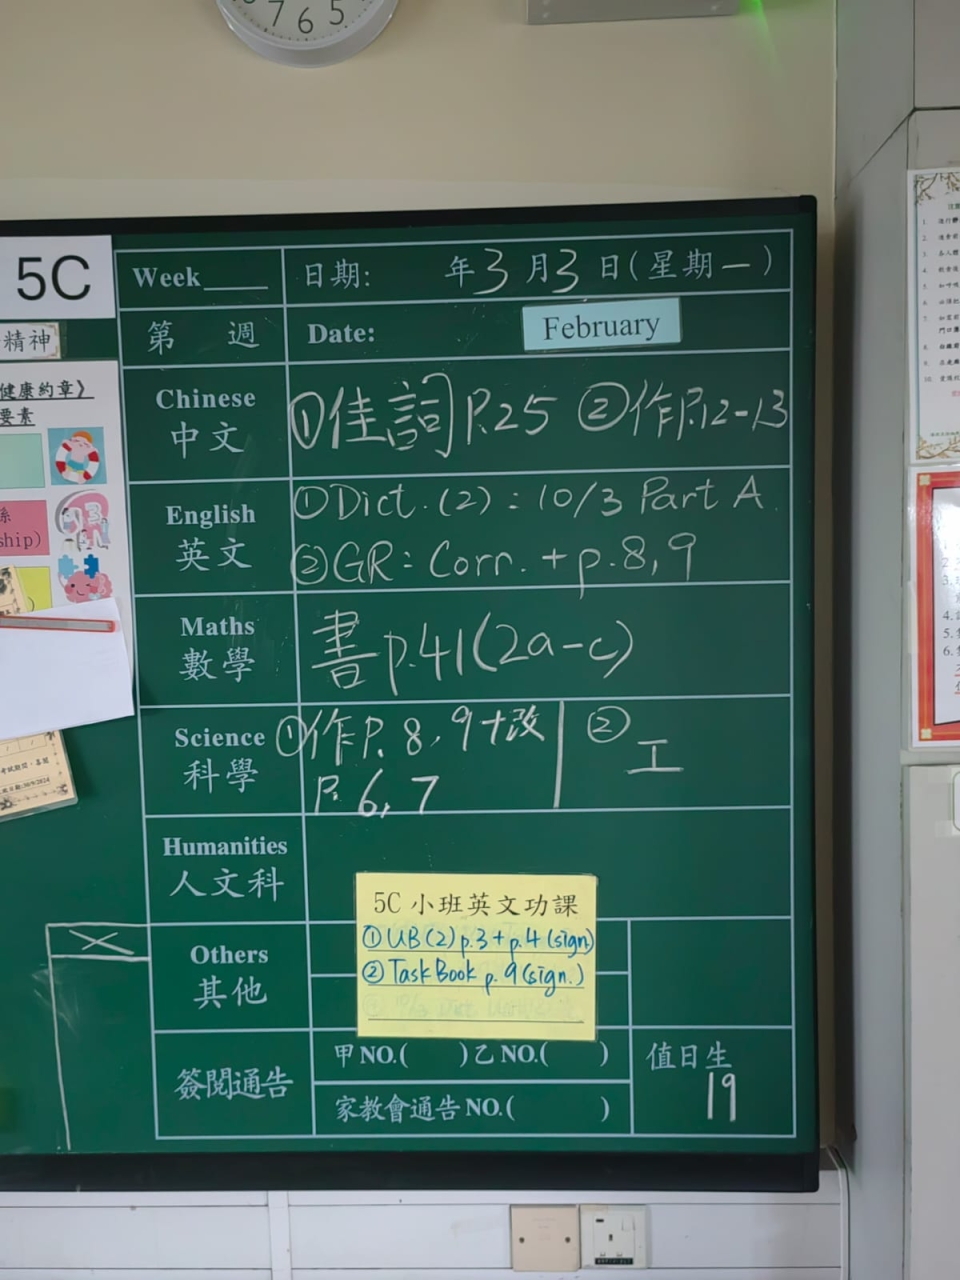 7 6 5
5C
精神
健康約章》
要素
ship)
Week_____ 日期: 年3月3日(星期一)
第 週 Date: February
Chinese 中文
①佳詞P.25 ②作P.12-13
English 英文
①Dict.(2): 10/3 Part A
②GR: Corr. + p.8,9
Maths 數學
書p.41(2a-c)
Science 科學
①作P.8,9+改
P.6,7
②工
Humanities
人文科
5C 小班英文功課
①UB(2) p.3+p.4(sign)
②Task Book p.9(sign.)
Others
其他
簽閱通告
甲NO.( )乙NO.( )
家教會通告NO.( )
值日生
19